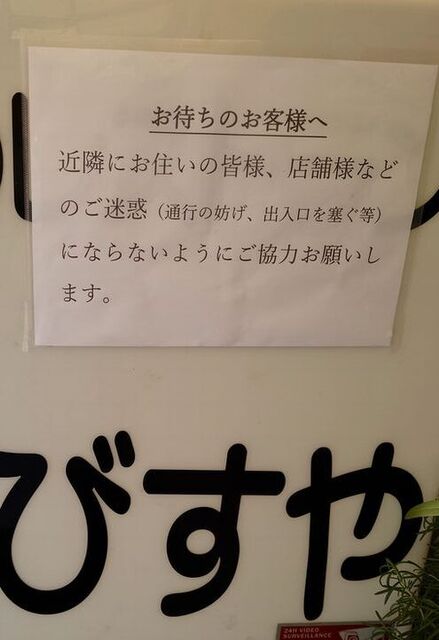 お待ちのお客様へ
近隣にお住いの皆様、店舗様など
のご迷惑（通行の妨げ、出入口を塞ぐ等）
にならないようにご協力お願いし
ます。
びすや
24H VIDEO
SURVEILLANCE